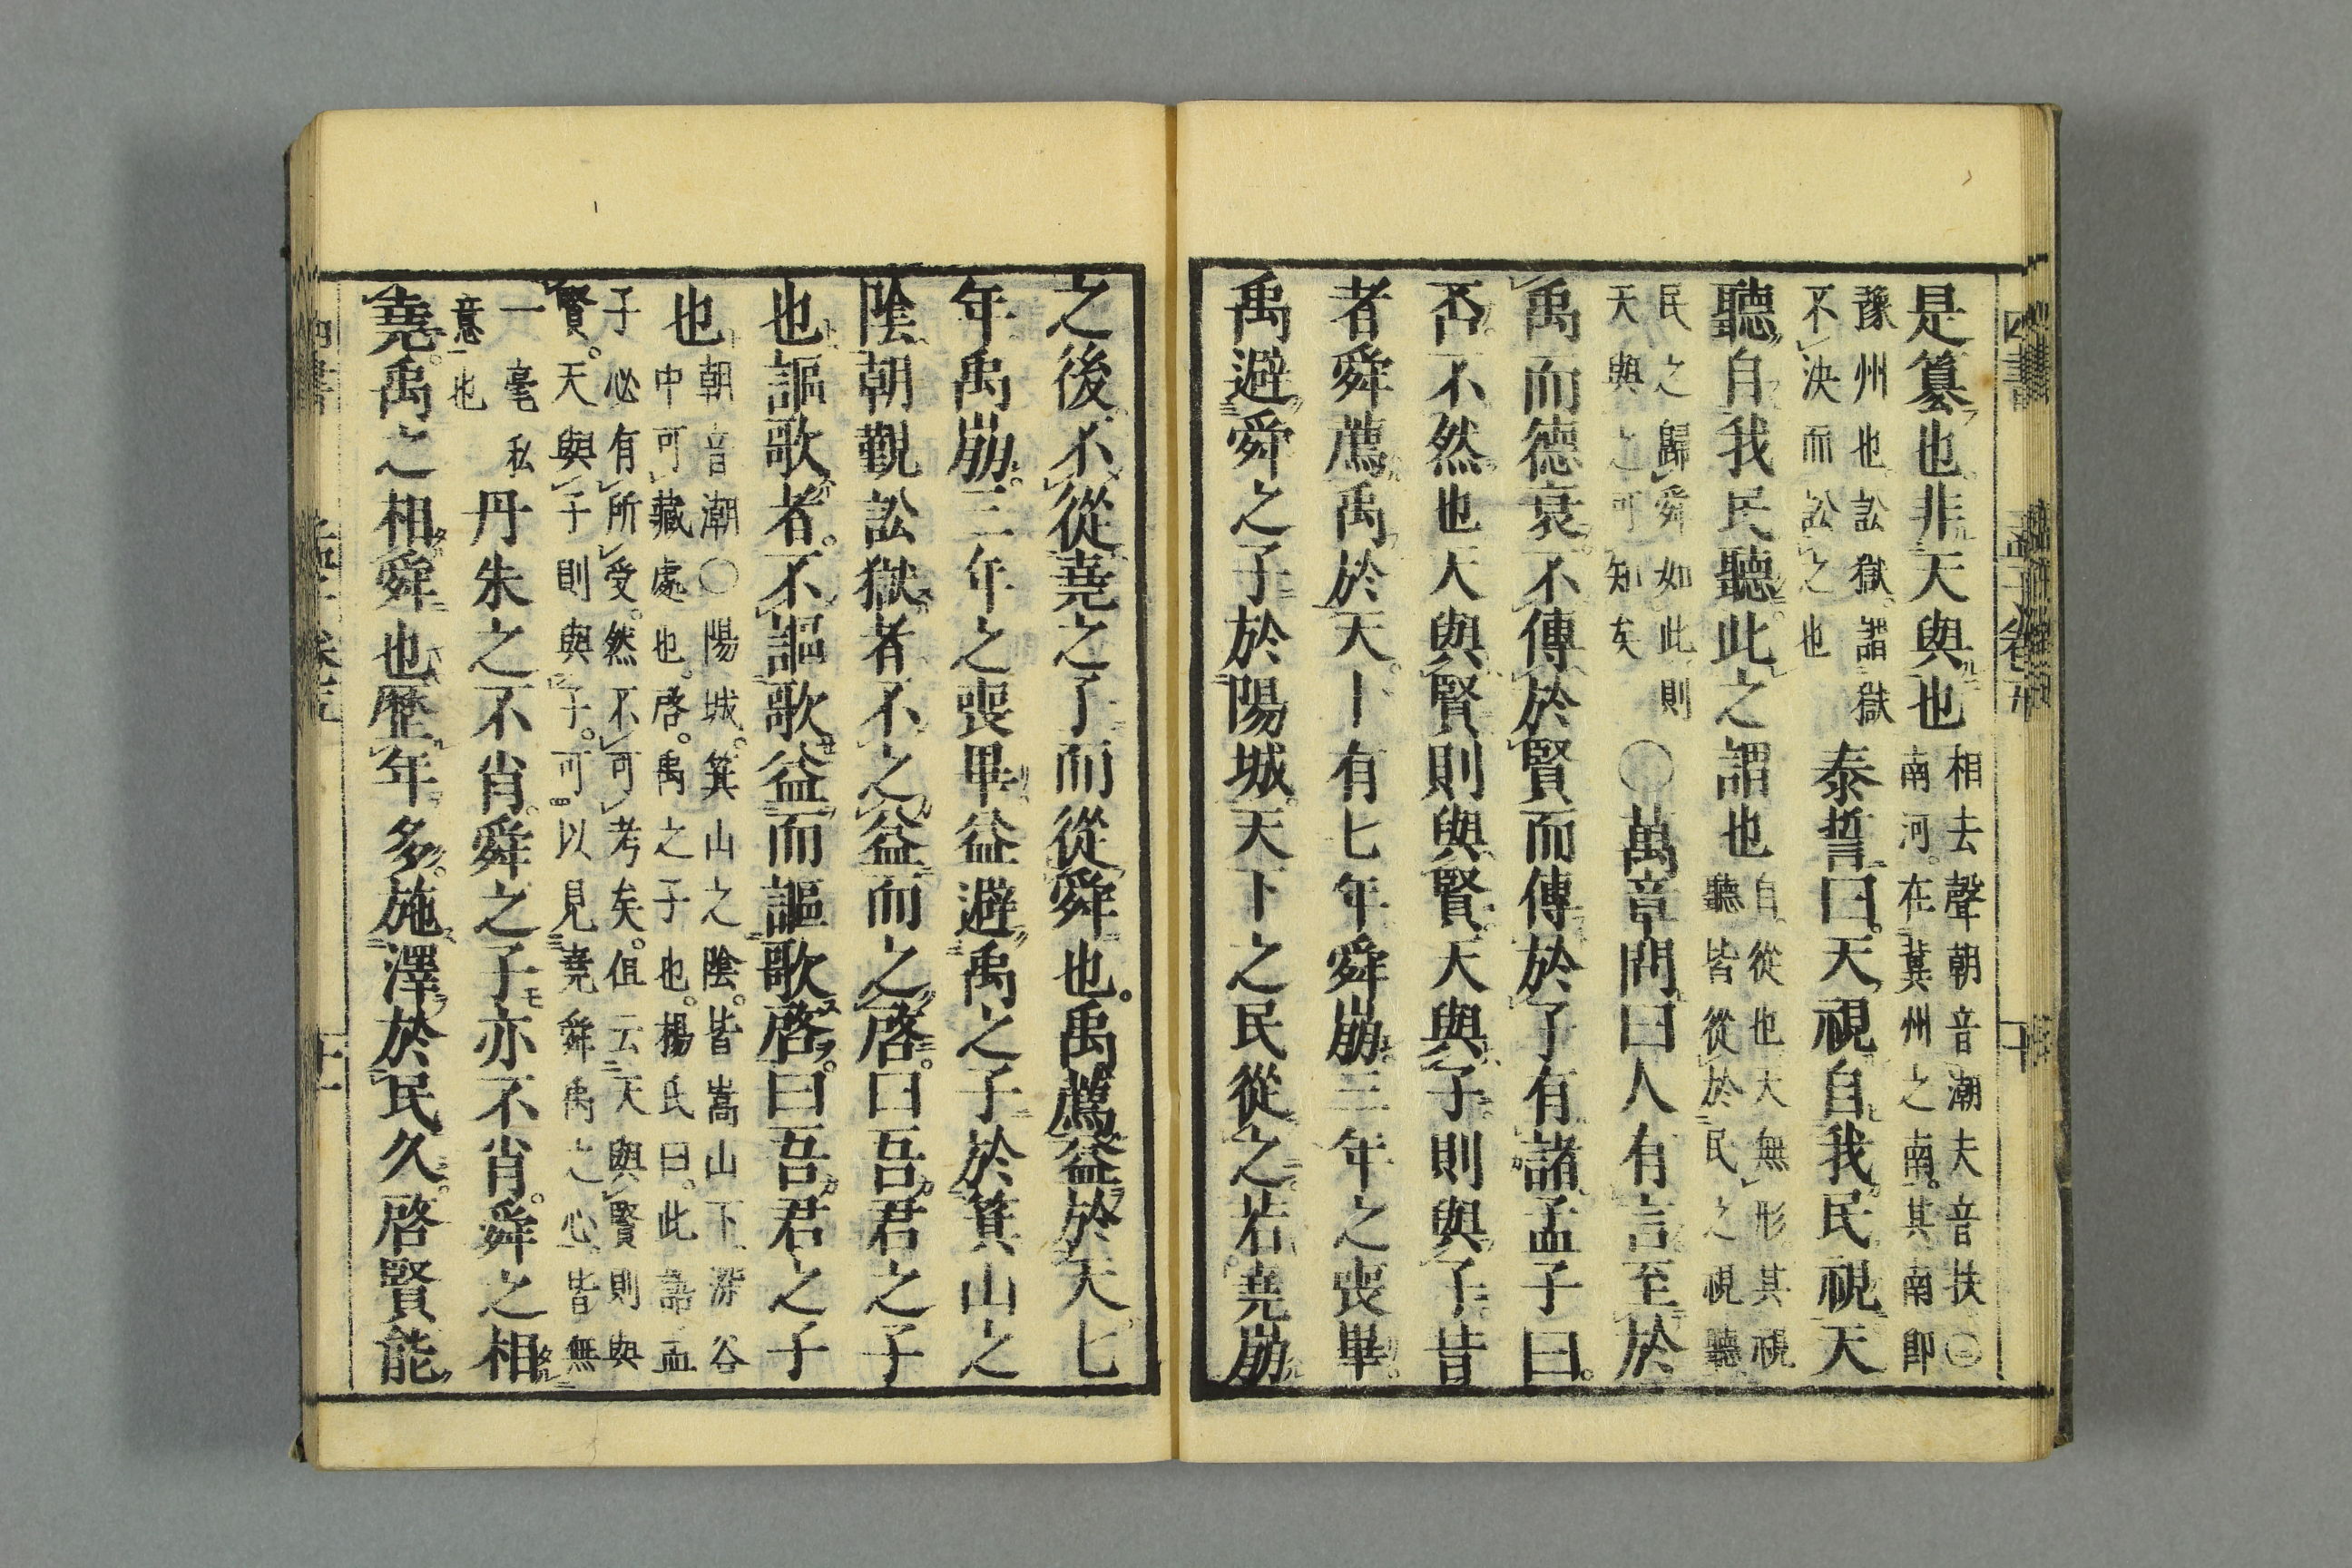 是篡也非天與也 相去聲朝音潮夫音扶○
南河在冀州之南其南即
豫州也訟獄謂獄
不決而訟之也 泰誓曰天視自我民視天
聽自我民聽此之謂也 自從也天無形其視
聽皆從於民之視聽
民之歸舜如此則
天與之可知矣 ○萬章問曰人有言至於
禹而德衰不傳於賢而傳於子有諸孟子曰
否不然也天與賢則與賢天與子則與子昔
者舜薦禹於天十有七年舜崩三年之喪畢
禹避舜之子於陽城天下之民從之若堯崩
之後不從堯之子而從舜也禹薦益於天七
年禹崩三年之喪畢益避禹之子於箕山之
陰朝覲訟獄者不之益而之啓曰吾君之子
也謳歌者不謳歌益而謳歌啓曰吾君之子
也 朝音潮○陽城箕山之陰皆嵩山下深谷
中可藏處也啓禹之子也楊氏曰此語孟
子必有所受然不可考矣但云天與賢則與
賢天與子則與子可以見堯舜禹之心皆無
一毫私
意也 丹朱之不肖舜之子亦不肖舜之相
堯禹之相舜也歷年多施澤於民久啓賢能
四書
十一